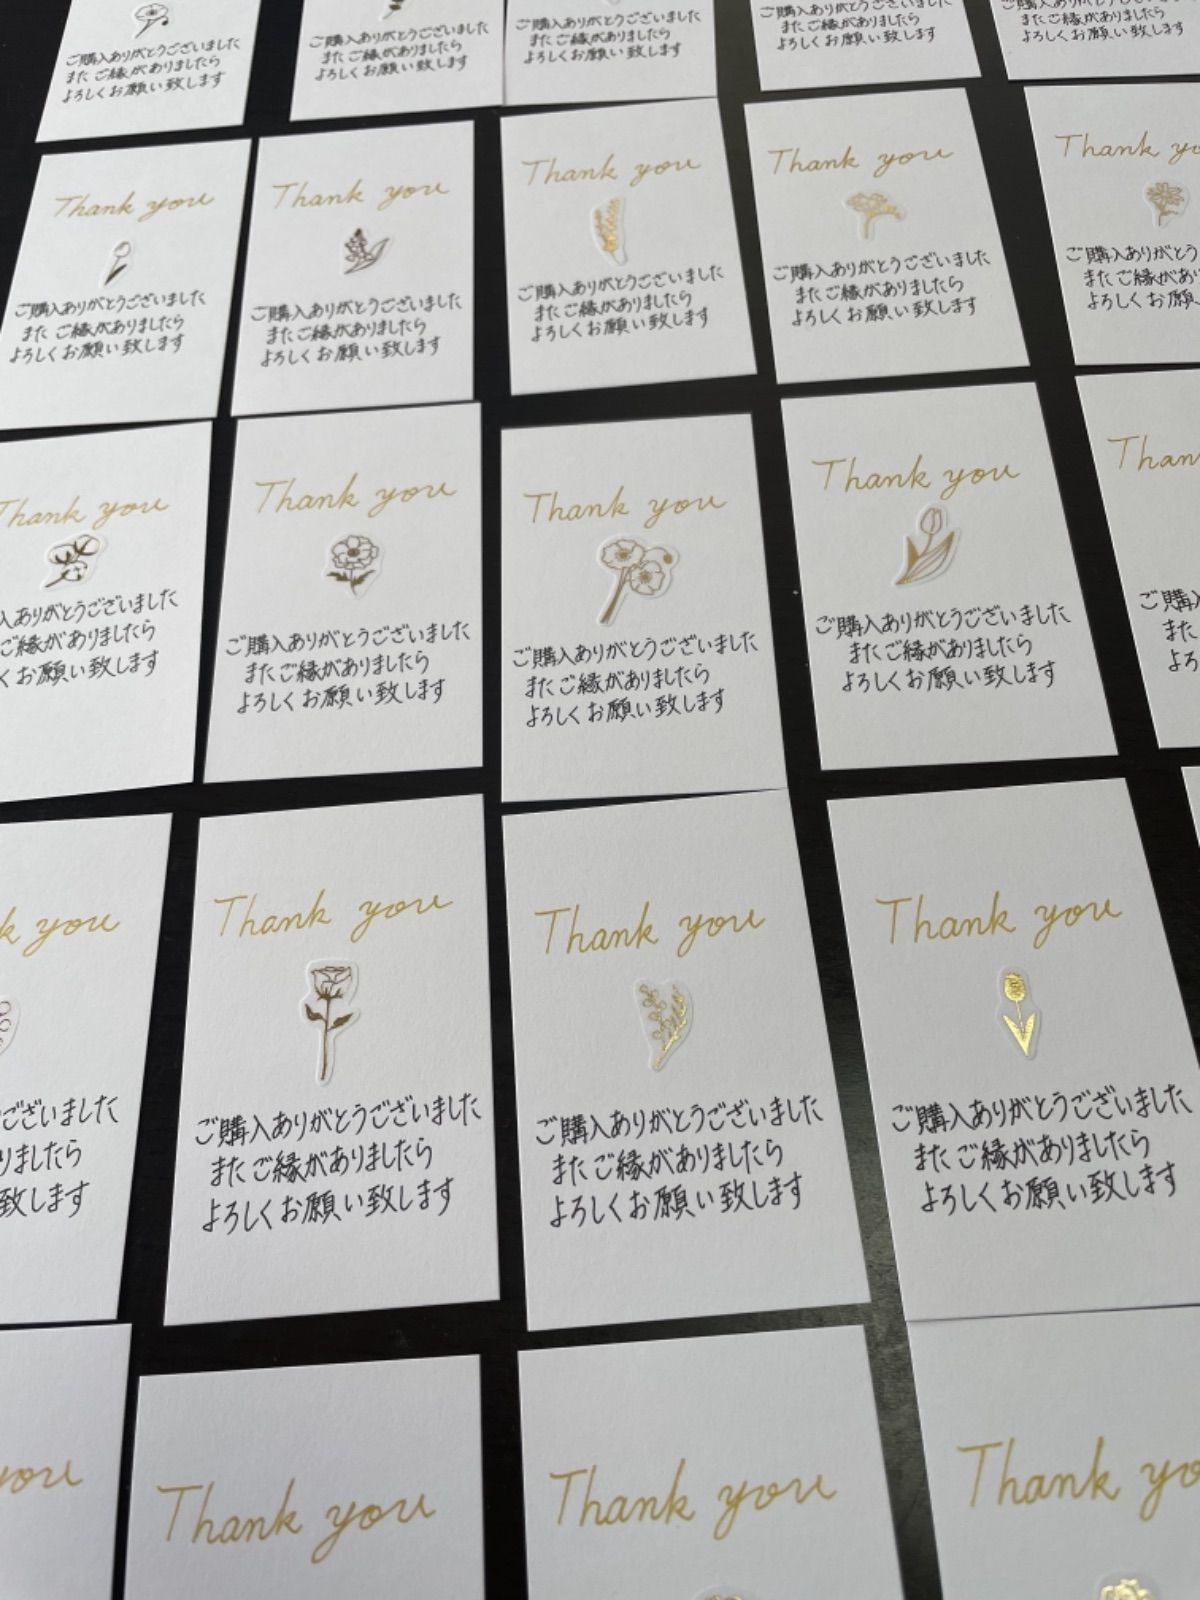 ご購入ありがとうございました
また ご縁がありましたら
よろしくお願い致します
ご購入ありがとうございました
また ご縁がありましたら
よろしくお願い致します
ご購入ありがとうございました
また ご縁がありましたら
よろしくお願い致します
ご購入ありがとうございました
また ご縁がありましたら
よろしくお願い致します
また ご縁がありましたら
よろしくお願い致します
Thank you
ご購入ありがとうございました
また ご縁がありましたら
よろしくお願い致します
Thank you
ご購入ありがとうございました
また ご縁がありましたら
よろしくお願い致します
Thank you
ご購入ありがとうございました
また ご縁がありましたら
よろしくお願い致します
Thank you
ご購入ありがとうございました
また ご縁がありましたら
よろしくお願い致します
Thank yo
ご購入ありがとう
また ご縁があり
よろしくお願
Thank you
入ありがとうございました
ご縁がありましたら
くお願い致します
Thank you
ご購入ありがとうございました
また ご縁がありましたら
よろしくお願い致します
Thank you
ご購入ありがとうございました
また ご縁がありましたら
よろしくお願い致します
Thank you
ご購入ありがとうございました
また ご縁がありましたら
よろしくお願い致します
Than
ご購
また
よろ
k you
ございました
りましたら
致します
Thank you
ご購入ありがとうございました
また ご縁がありましたら
よろしくお願い致します
Thank you
ご購入ありがとうございました
また ご縁がありましたら
よろしくお願い致します
Thank you
ご購入ありがとうございました
また ご縁がありましたら
よろしくお願い致します
you
Thank you
Thank you
Thank yo